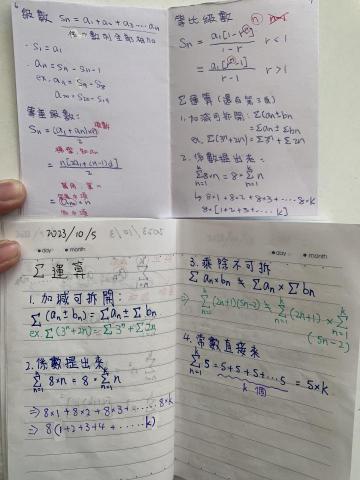 級數 Sn = a1 + a2 + a3 .... an
從一數列全部相加
· S1 = a1
· an = Sn - Sn-1
ex. a9 = S9 - S8
a20 = S20 - S19
等差級數:
Sn = (a1 + an)×n
2
= n[2a1 + (n-1)d]
2
等比級數
Sn = a1[1-r^n] r<1
1-r
= a1[r^n-1] r>1
r-1
Σ運算
1. 加減可拆開: Σ(an±bn)
= Σan ± Σbn
ex. Σ(3^n+2n) = Σ3^n + Σ2n
2. 係數提出來:
Σ8×n = 8·Σn
n=1 n=1
↳ 8×1 + 8×2 + 8×3 + .... 8×k
8×[1+2+3+.... k]
2023/10/5
day: month
Σ運算
1. 加減可拆開:
Σ(an±bn) = Σan ± Σbn
ex. Σ(3^n+2n) = Σ3^n + Σ2n
2. 係數提出來
k k
Σ 8×n = 8·Σ n
n=1 n=1
⇒ 8×1 + 8×2 + 8×3 + ...... 8×k
⇒ 8(1+2+3+4+ ...... k)
day: month
3. 乘除不可拆
Σ an×bn ≠ Σan × Σbn
⇒ Σ(2n+1)(5n-2) ≠ Σ(2n+1) × Σ
n=1 n=1 n=1
(5n-2)
4. 常數直接乘
k
Σ 5 = 5+5+5+...5 = 5×k
n=1
k個